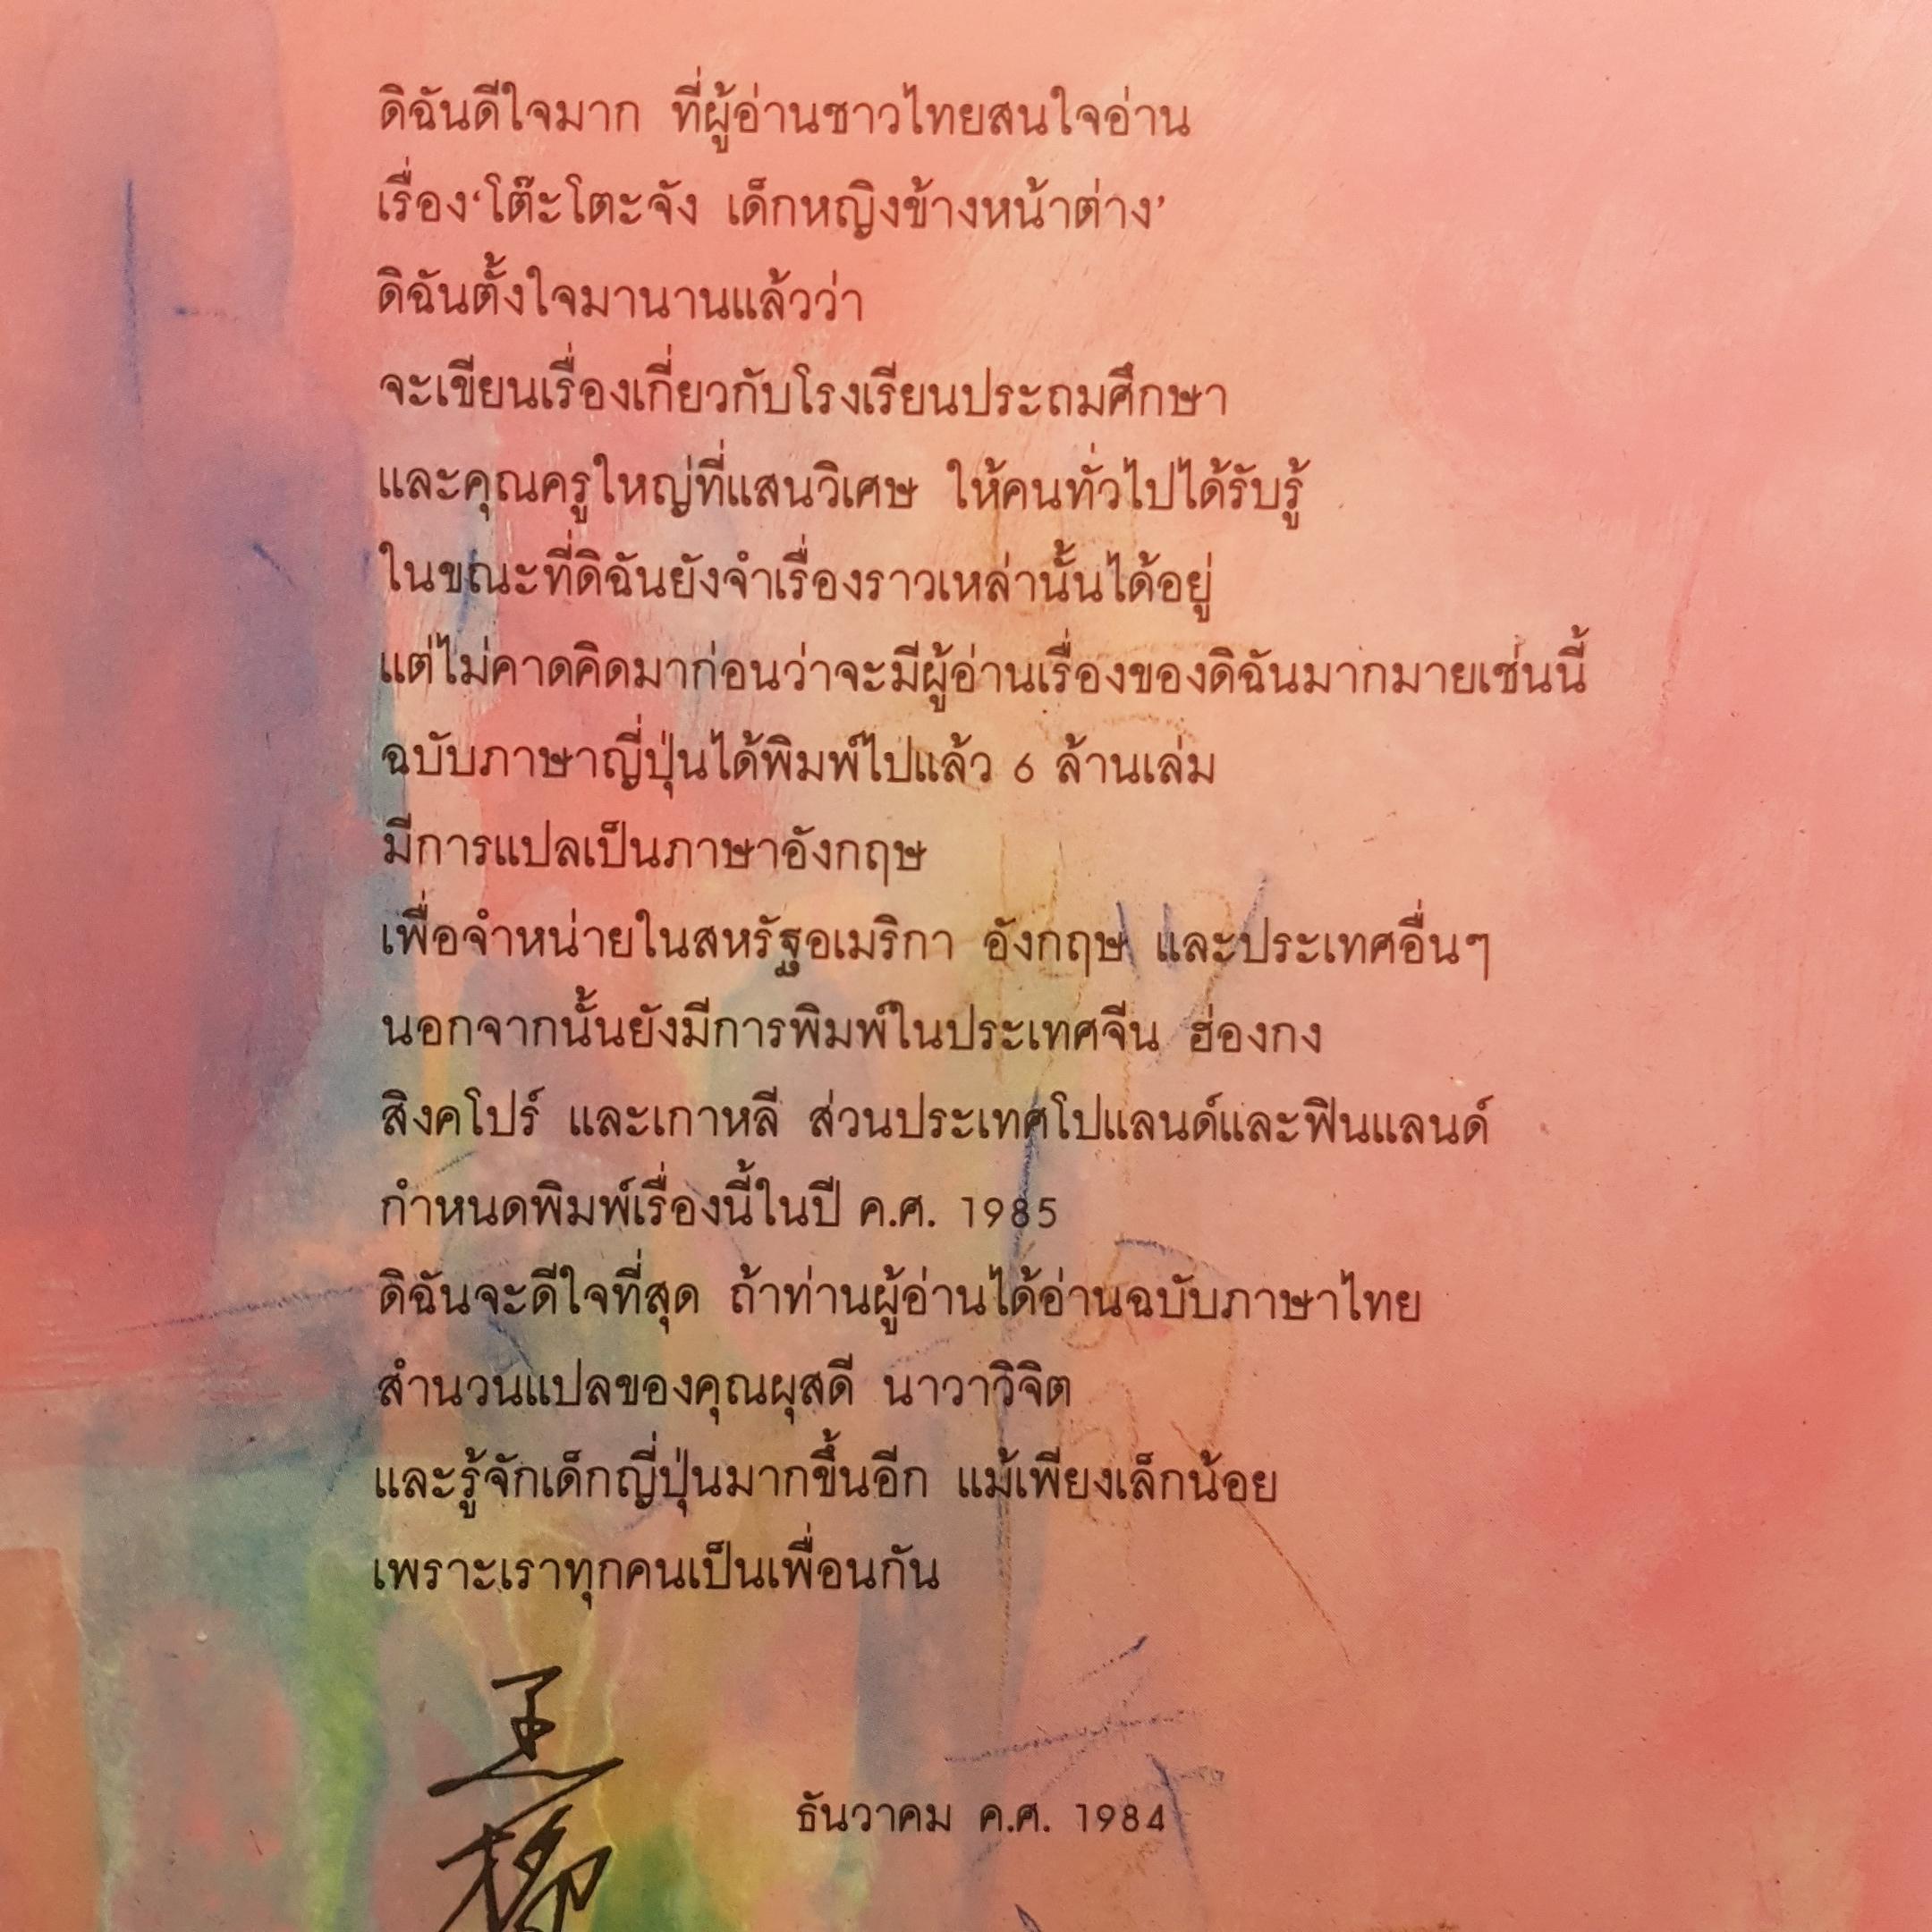 ดิฉันดีใจมาก ที่ผู้อ่านชาวไทยสนใจอ่าน
เรื่อง‘โต๊ะโตะจัง เด็กหญิงข้างหน้าต่าง’
ดิฉันตั้งใจมานานแล้วว่า
จะเขียนเรื่องเกี่ยวกับโรงเรียนประถมศึกษา
และคุณครูใหญ่ที่แสนวิเศษ ให้คนทั่วไปได้รับรู้
ในขณะที่ดิฉันยังจำเรื่องราวเหล่านั้นได้อยู่
แต่ไม่คาดคิดมาก่อนว่าจะมีผู้อ่านเรื่องของดิฉันมากมายเช่นนี้
ฉบับภาษาญี่ปุ่นได้พิมพ์ไปแล้ว 6 ล้านเล่ม
มีการแปลเป็นภาษาอังกฤษ
เพื่อจำหน่ายในสหรัฐอเมริกา อังกฤษ และประเทศอื่นๆ
นอกจากนั้นยังมีการพิมพ์ในประเทศจีน ฮ่องกง
สิงคโปร์ และเกาหลี ส่วนประเทศโปแลนด์และฟินแลนด์
กำหนดพิมพ์เรื่องนี้ในปี ค.ศ. 1985
ดิฉันจะดีใจที่สุด ถ้าท่านผู้อ่านได้อ่านฉบับภาษาไทย
สำนวนแปลของคุณผุสดี นาวาวิจิต
และรู้จักเด็กญี่ปุ่นมากขึ้นอีก แม้เพียงเล็กน้อย
เพราะเราทุกคนเป็นเพื่อนกัน
ธันวาคม ค.ศ. 1984